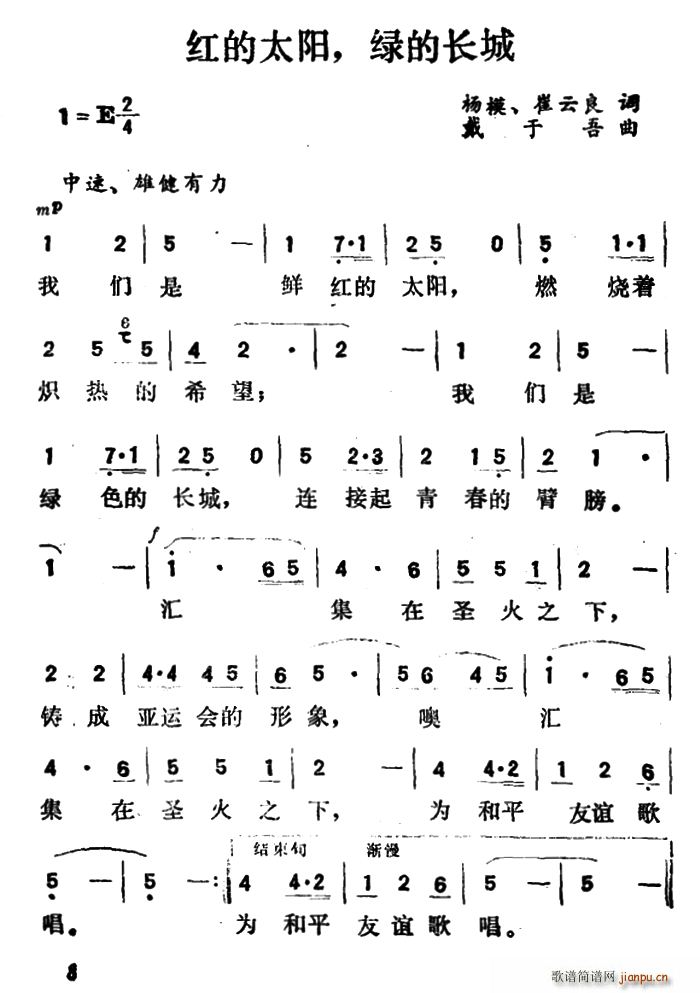 红的太阳，绿的长城
1=E 2/4
杨模、崔云良 词
戴于吾 曲
中速、雄健有力
mp
1 2 | 5 — | 1 7·1 | 2 5 0 | 5 1·1 |
我们是 鲜红的太阳， 燃烧着
2 5 5 | 4 2 · | 2 — | 1 2 | 5 — |
炽热的希望； 我们是
1 7·1 | 2 5 0 | 5 2·3 | 2 1 5 | 2 1 · |
绿色的长城， 连接起青春的臂膀。
f
1 — | 1 · 6 5 | 4 · 6 | 5 5 1 | 2 — |
汇集在圣火之下，
2 2 | 4·4 4 5 | 6 5 · | 5 6 4 5 | 1 · 6 5 |
铸成亚运会的形象， 噢 汇
4 · 6 | 5 5 1 | 2 — | 4 4·2 | 1 2 6 |
集在圣火之下， 为和平友谊歌
结束句 渐慢
5 — | 5 — :| 4 4·2 | 1 2 6 | 5 — | 5 — |
唱。 为和平友谊歌唱。
8
歌谱简谱网
jianpu.cn